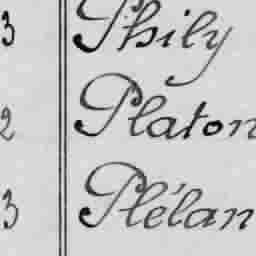 3 Phily
2 Platon
3 Plélan